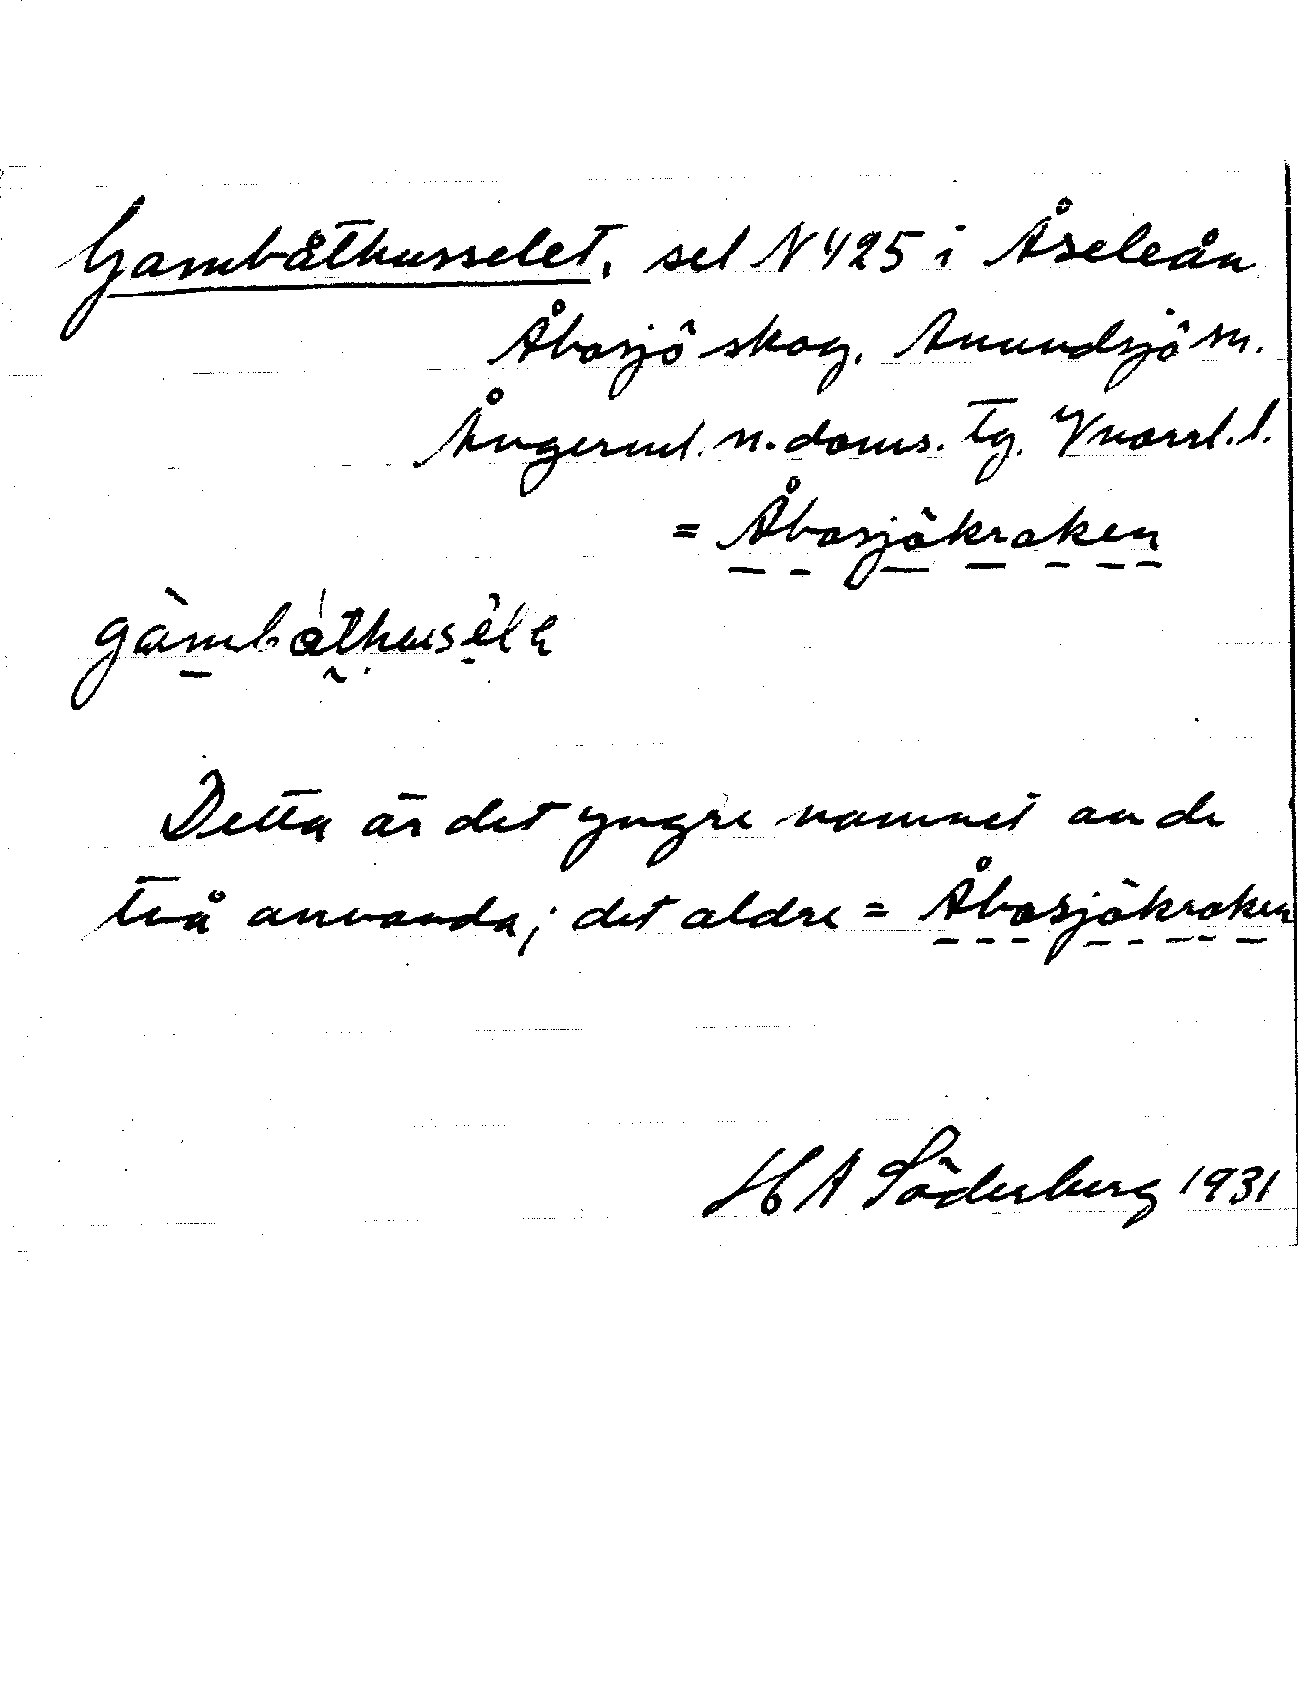 Gambåthusselet, sel N 425 i Åseleån
Åbosjö skog. Anundsjö sn.
Ångerml. n. doms. tg. Vnorrl. l.
= Åbosjökroken
gàmbåthusèle
Detta är det yngre namnet av de
två använda; det äldre = Åbosjökroken
H A Söderberg 1931